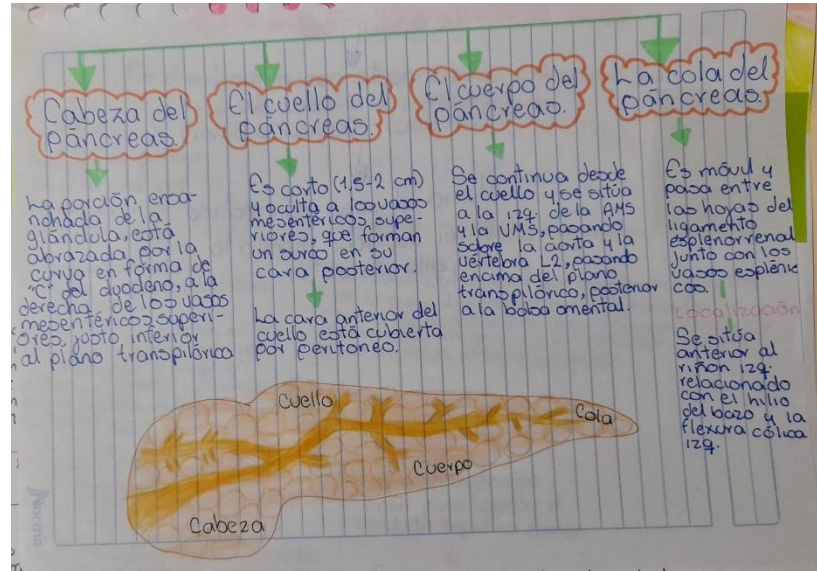 Cabeza del
páncreas.
La porción ensa-
nchada de la
glándula, está
abrazada por la
curva en forma de
"C" del duodeno, a la
derecha de los vasos
mesentéricos superi-
ores, justo interior
al plano transpilórica
El cuello del
páncreas.
Es corto (1,5-2 cm)
y oculta a los vasos
mesentéricos supe-
riores, que forman
un surco en su
cara posterior.
La cara anterior del
cuello está cubierta
por peritoneo.
El cuerpo del
páncreas.
Se continua desde
el cuello y se sitúa
a la izq. de la AMS
y la VMS, pasando
sobre la aorta y la
vértebra L2, pasando
encima del plano
transpilórico, posterior
a la bolsa omental.
La cola del
páncreas.
Es móvil y
pasa entre
las hojas del
ligamento
esplenorrenal
junto con los
vasos esplénic
cos.
Localización
Se sitúa
anterior al
riñon izq.
relacionado
con el hilio
del bazo y la
flexura cólica
izq.
Cuello
Cola
Cuerpo
Cabeza
Norma